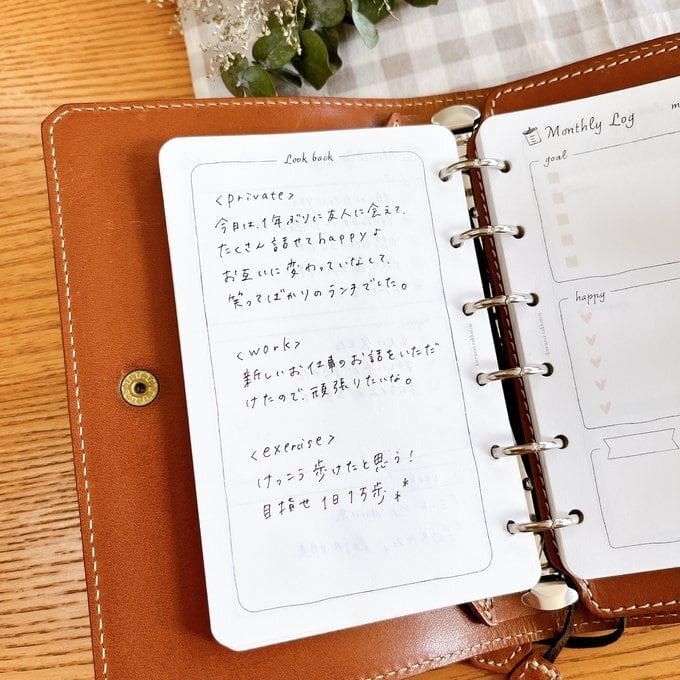 Look back
<private>
今日は、1年ぶりに友人に会えて、
たくさん話せてhappy♪
お互いに変わっていなくて、
笑ってばかりのランチでした。
<work>
新しいお仕事のお話をいただだ
けたので、頑張りたいな。
<exercise>
けっこう歩けたと思う!
目指せ1日1万歩**
Monthly Log
m
goal
happy